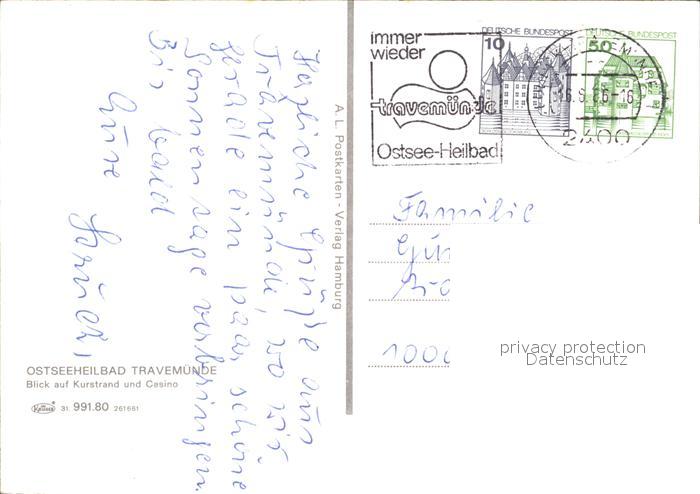 Herzliche Grüße aus
Travemünde, wo wir
gerade ein paar schöne
Sonnentage verbringen.
Bis bald
Eure
A. L. Postkarten - Verlag Hamburg
OSTSEEHEILBAD TRAVEMÜNDE
Blick auf Kurstrand und Casino
Krüger 31. 991.80 261661
immer
wieder
travemünde
Ostsee-Heilbad
DEUTSCHE BUNDESPOST
10
DEUTSCHE BUNDESPOST
50
2400
Familie
Gün
1000
privacy protection
Datenschutz